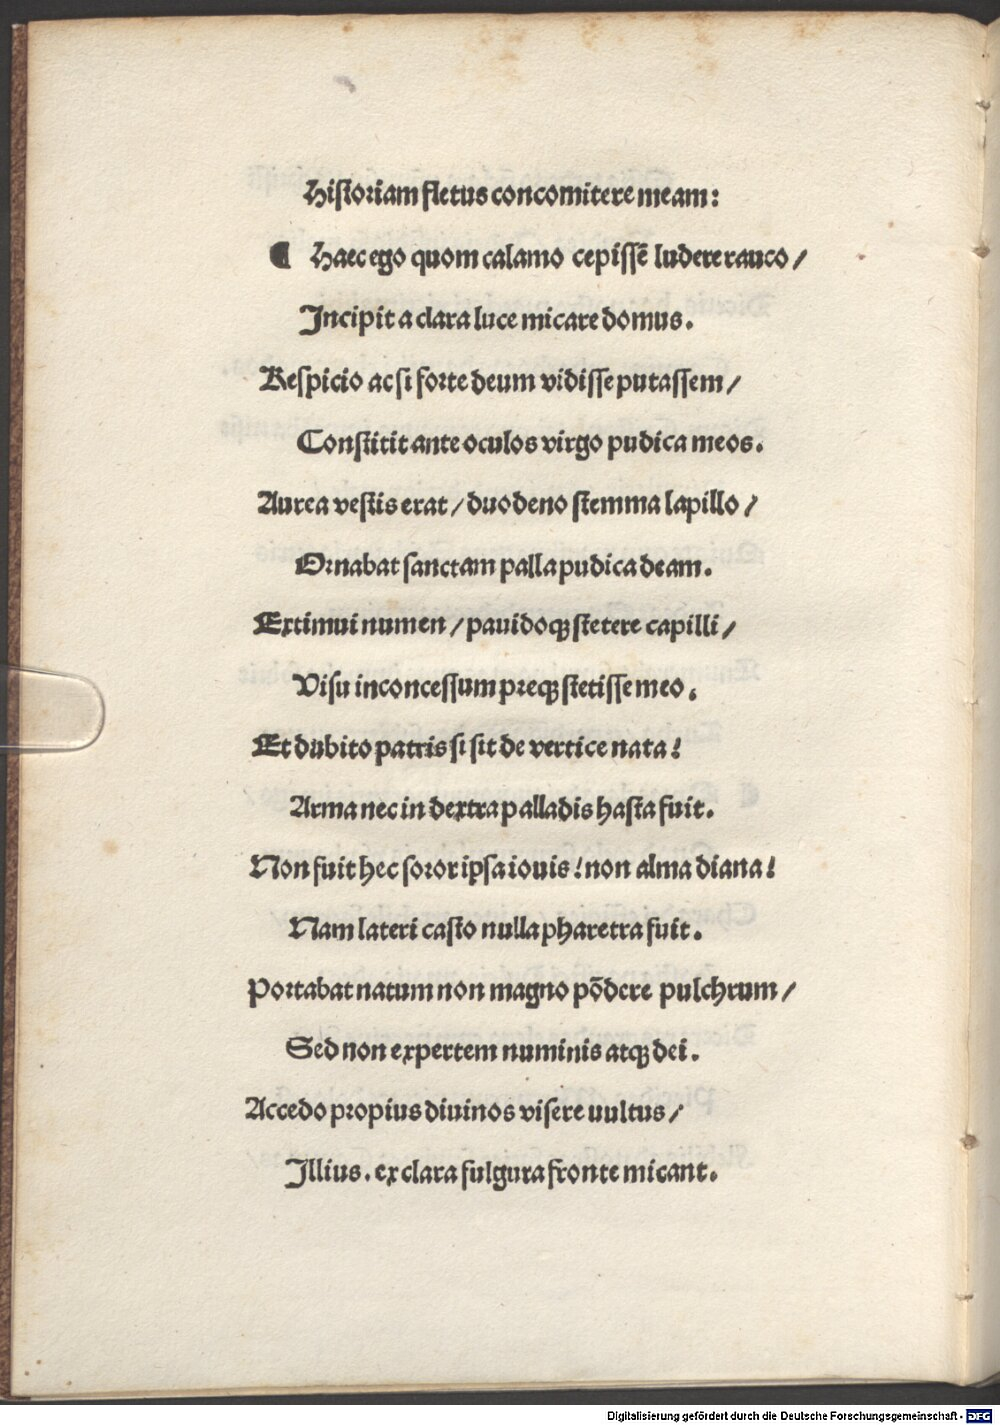 Historiam fletus concomitere meam:
¶ Haec ego quom calamo cepissẽ ludere rauco /
Incipit a clara luce micare domus.
Respicio ac si forte deum vidisse putassem /
Constitit ante oculos virgo pudica meos.
Aurea vestis erat / duodeno stemma lapillo /
Ornabat sanctam palla pudica deam.
Extimui numen / pavidoqꝫ stetere capilli /
Visu inconcessum preqꝫ stetisse meo.
Et dubito patris si sit de vertice nata!
Arma nec in dextra palladis hasta fuit.
Non fuit hec soror ipsa iouis! non alma diana!
Nam lateri casto nulla pharetra fuit.
Portabat natum non magno põdere pulchrum /
Sed non expertem numinis atqꝫ dei.
Accedo propius diuinos visere uultus /
Illius. ex clara fulgura fronte micant.
Digitalisierung gefördert durch die Deutsche Forschungsgemeinschaft - DFG